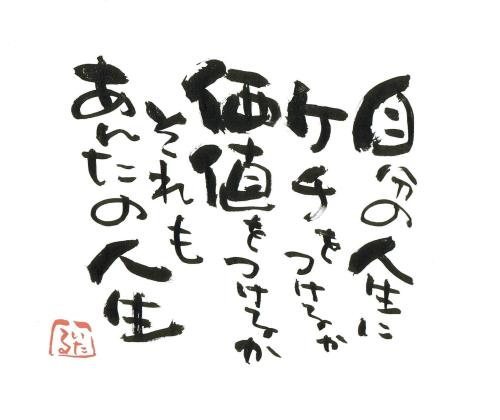 自分の人生に
ケチをつけるか
価値をつけるか
それも
あんたの人生